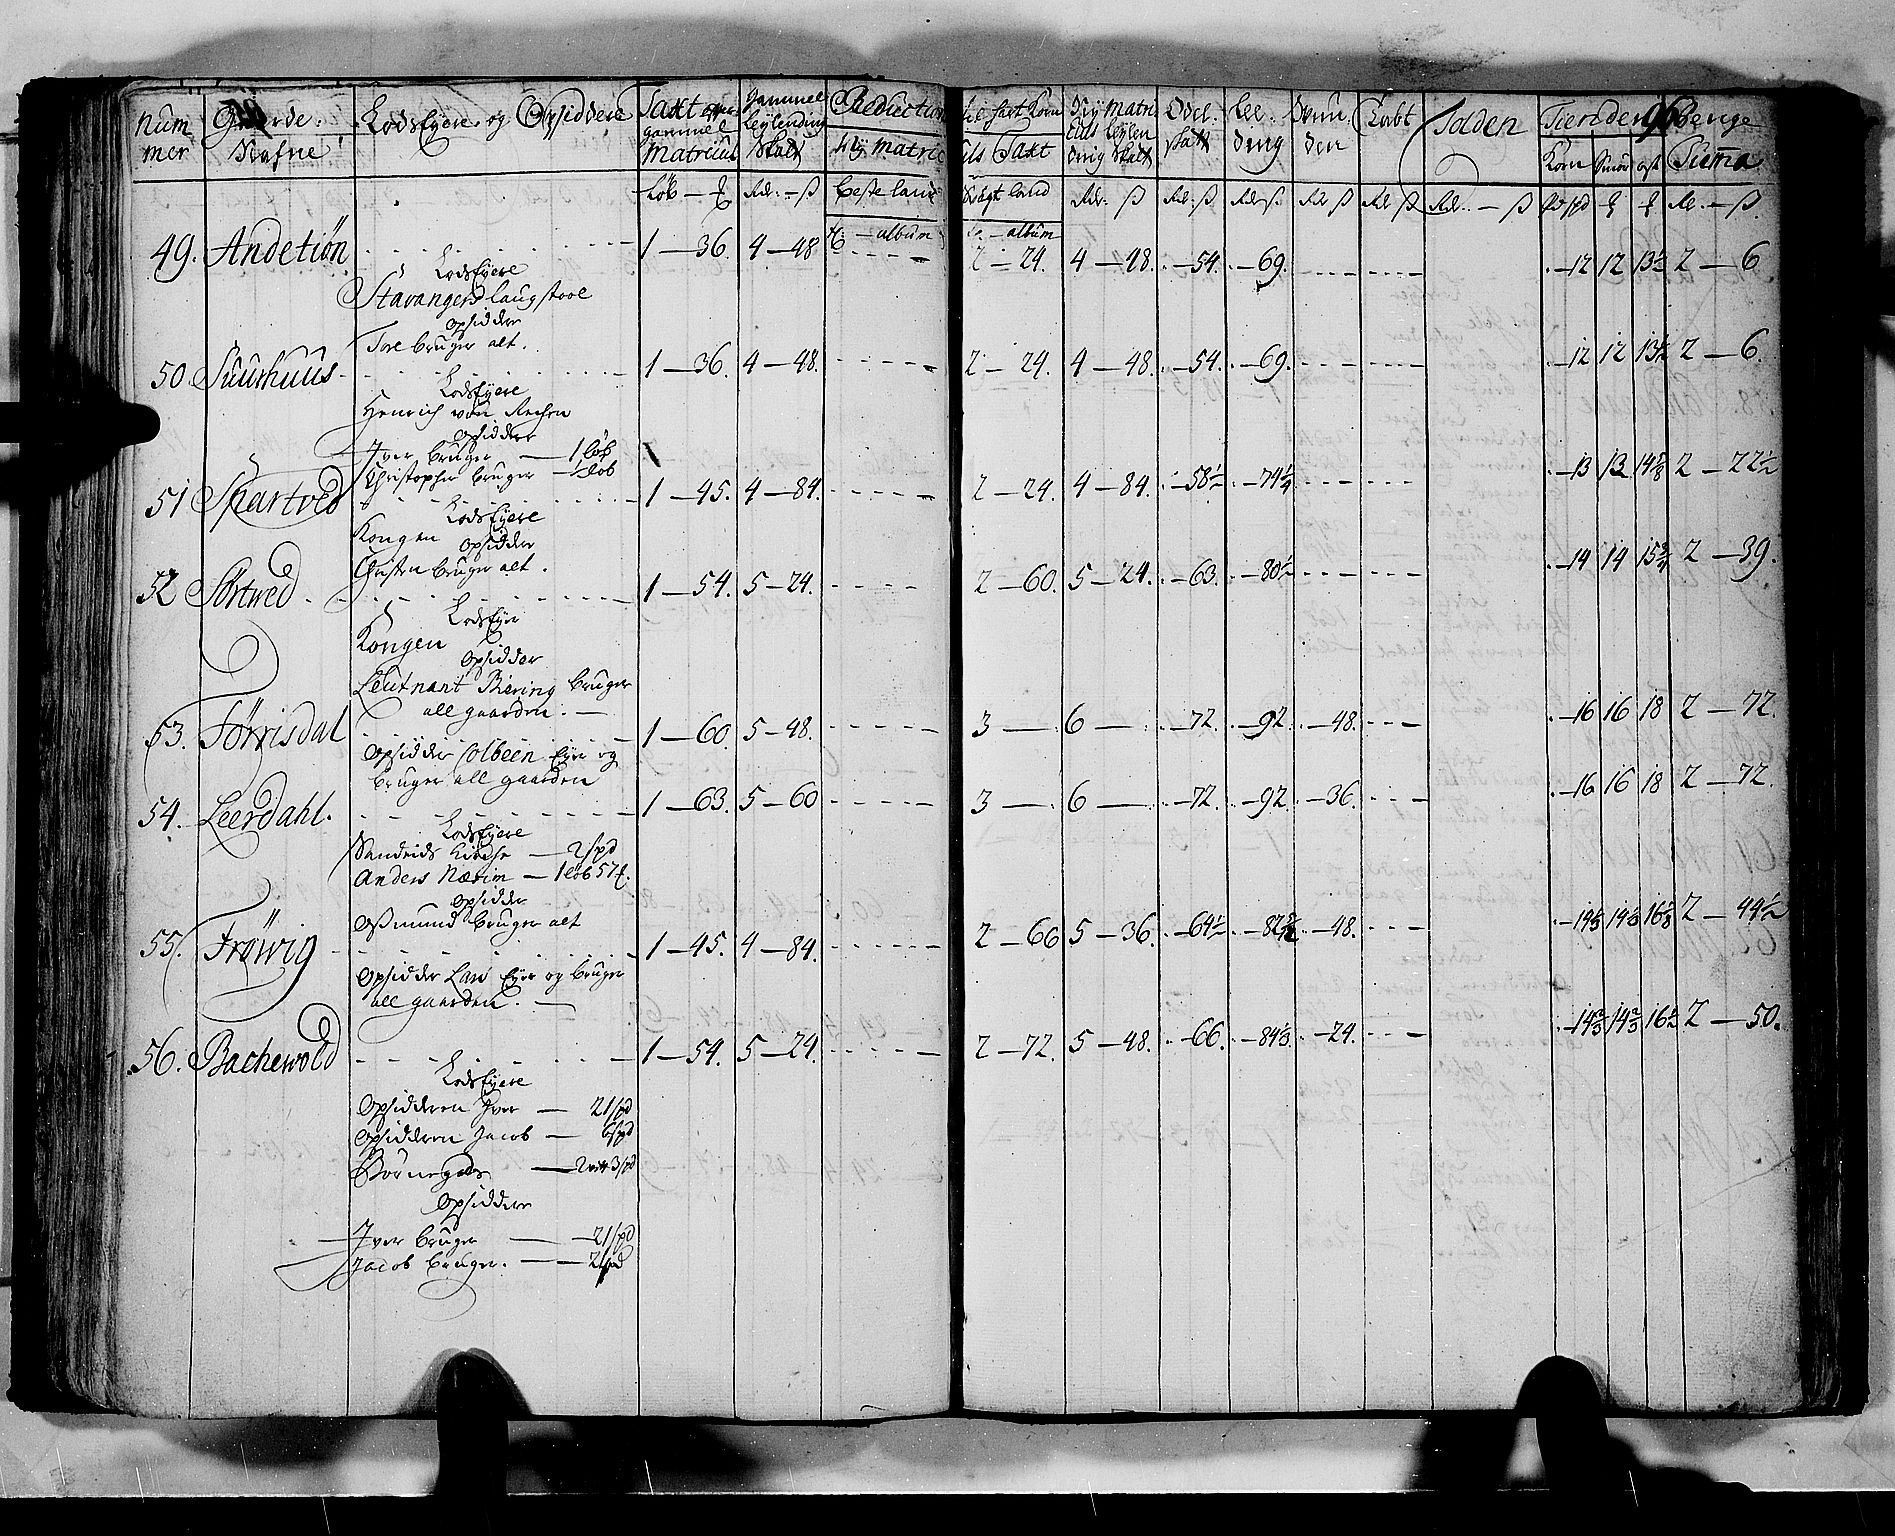 Num mer | Gaarde Nafne | LodsEyere og Opsiddere | Taxt efter gammel Matricul | Gammel leylending Skatt | Reduction | til fast Korn | Ny Matri culs leylen ding Skatt | Odel skatt | Lee ding | Kobt | Tolden | Tienden | Penge
Ny Matric | culs Taxt | Korn | Smør | ost | Summa
Løb — £ | Rd: — ß | beste land | Slagt land | Rdr: ß | Rd: ß | Rd: ß | Rd ß | Rd ß | Rd: — ß | £ | £ | Rd: — ß
album | album
49. Andetiøn 1 — 36. 4 — 48 2 — 24. 4 — 48. — 54. — 69. — 12 12 13½ 2 — 6
LodsEyere
Stavangers laugstool
opsidder
Tore bruger alt.
50 Suurhuus 1 — 36. 4 — 48. 2 — 24. 4 — 48. — 54. — 69. — 12 12 13½ 2 — 6
LodsEyere
Henrich von
opsiddere
Iver bruger — 1 løb
Christopher bruger — ½ løb
51 Spartved 1 — 45. 4 — 84. 2 — 24. 4 — 84. — 58½ — 74¼ — 13 13 14⅝ 2 — 22½
LodsEyere
Kongen
opsidder
Christen bruger alt.
52 Sørtved 1 — 54. 5 — 24. 2 — 60. 5 — 24. — 63. — 80½ — 14 14 15¾ 2 — 39.
LodsEyer
Kongen
opsidder
Leutnant Biering bruger
all gaarden.
53. Tørrisdal 1 — 60. 5 — 48. 3 — 6 — — 72. — 92 — 48. — 16 16 18 2 — 72.
opsidder Eyer og
bruger all gaarden
54. Leerdahl. 1 — 63. 5 — 60 3 — 6 — — 72. — 92. — 36. — 16 16 18 2 — 72.
LodsEyere
Sandeids Kirche — 2 spd
Anders Nærim — 1 løb 57 £.
opsidder
Ossmund bruger alt
55. Frøwig 1 — 45. 4 — 84. 2 — 66 5 — 36. — 64½ — 82 — 48. — 14⅓ 14⅓ 16⅛ 2 — 44½
opsidder Lars Eyer og bruger
all gaarden.
56. Bachewold 1 — 54. 5 — 24. 2 — 72. 5 — 48. — 66. — 84⅓. — 24. — 14⅔ 14⅔ 16½ 2 — 50.
LodsEyere
opsidderen Iver — 21 spd
opsidderen Jacob — 6 spd
— 3 spd
opsiddere
Iver bruger — 21 spd
Jacob bruger. — 21 spd